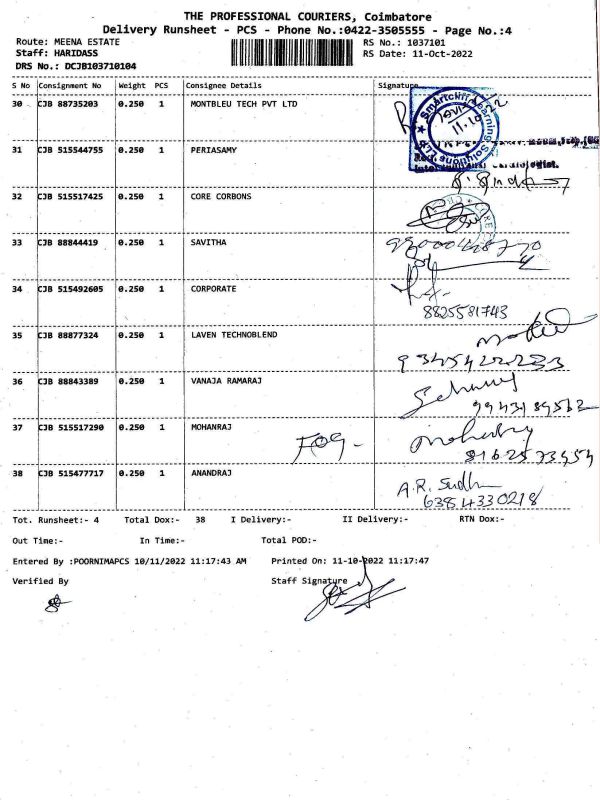 THE PROFESSIONAL COURIERS, Coimbatore
Delivery Runsheet - PCS - Phone No.:0422-3505555 - Page No.:4
Route: MEENA ESTATE RS No.: 1037101
Staff: HARIDASS RS Date: 11-Oct-2022
DRS No.: DCJB103710104
S No Consignment No Weight PCS Consignee Details Signature
30 CJB 88735203 0.250 1 MONTBLEU TECH PVT LTD
Smartcliff Learning Solutions LLP
11.10.22
31 CJB 515544755 0.250 1 PERIASAMY
32 CJB 515517425 0.250 1 CORE CORBONS
33 CJB 88844419 0.250 1 SAVITHA
34 CJB 515492605 0.250 1 CORPORATE
8825581743
35 CJB 88877324 0.250 1 LAVEN TECHNOBLEND
9345422233
36 CJB 88843389 0.250 1 VANAJA RAMARAJ
9943189562
37 CJB 515517290 0.250 1 MOHANRAJ
38 CJB 515477717 0.250 1 ANANDRAJ
A.R. Sudha
6384330218
Tot. Runsheet:- 4 Total Dox:- 38 I Delivery:- II Delivery:- RTN Dox:-
Out Time:- In Time:- Total POD:-
Entered By :POORNIMAPCS 10/11/2022 11:17:43 AM Printed On: 11-10-2022 11:17:47
Verified By Staff Signature